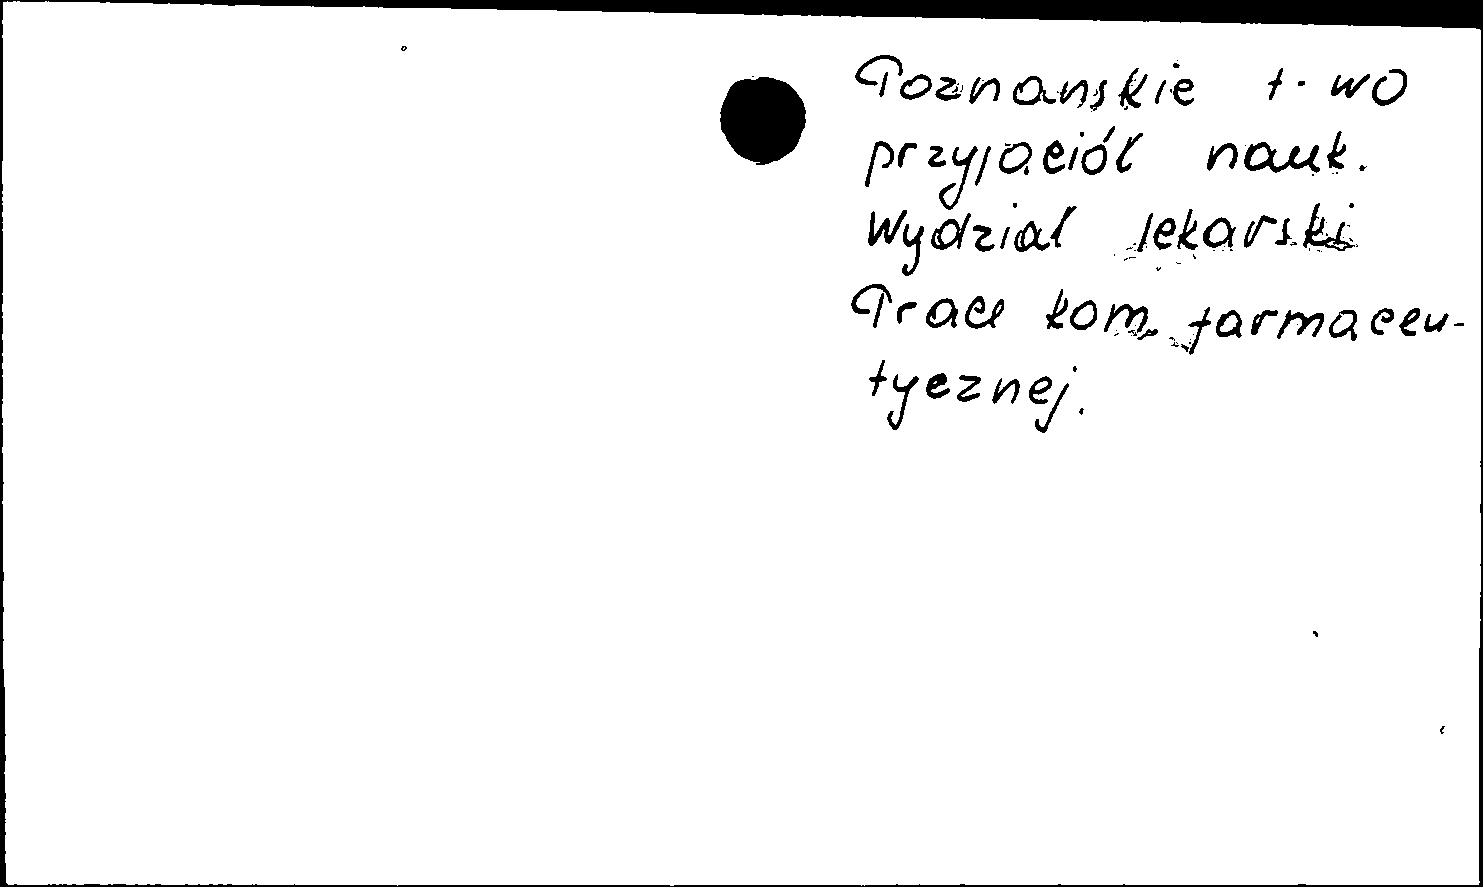 Poznanskie t-wo
przyjaciół nauk.
Wydział lekarski
Prace kom. farmaceu-
tycznej.